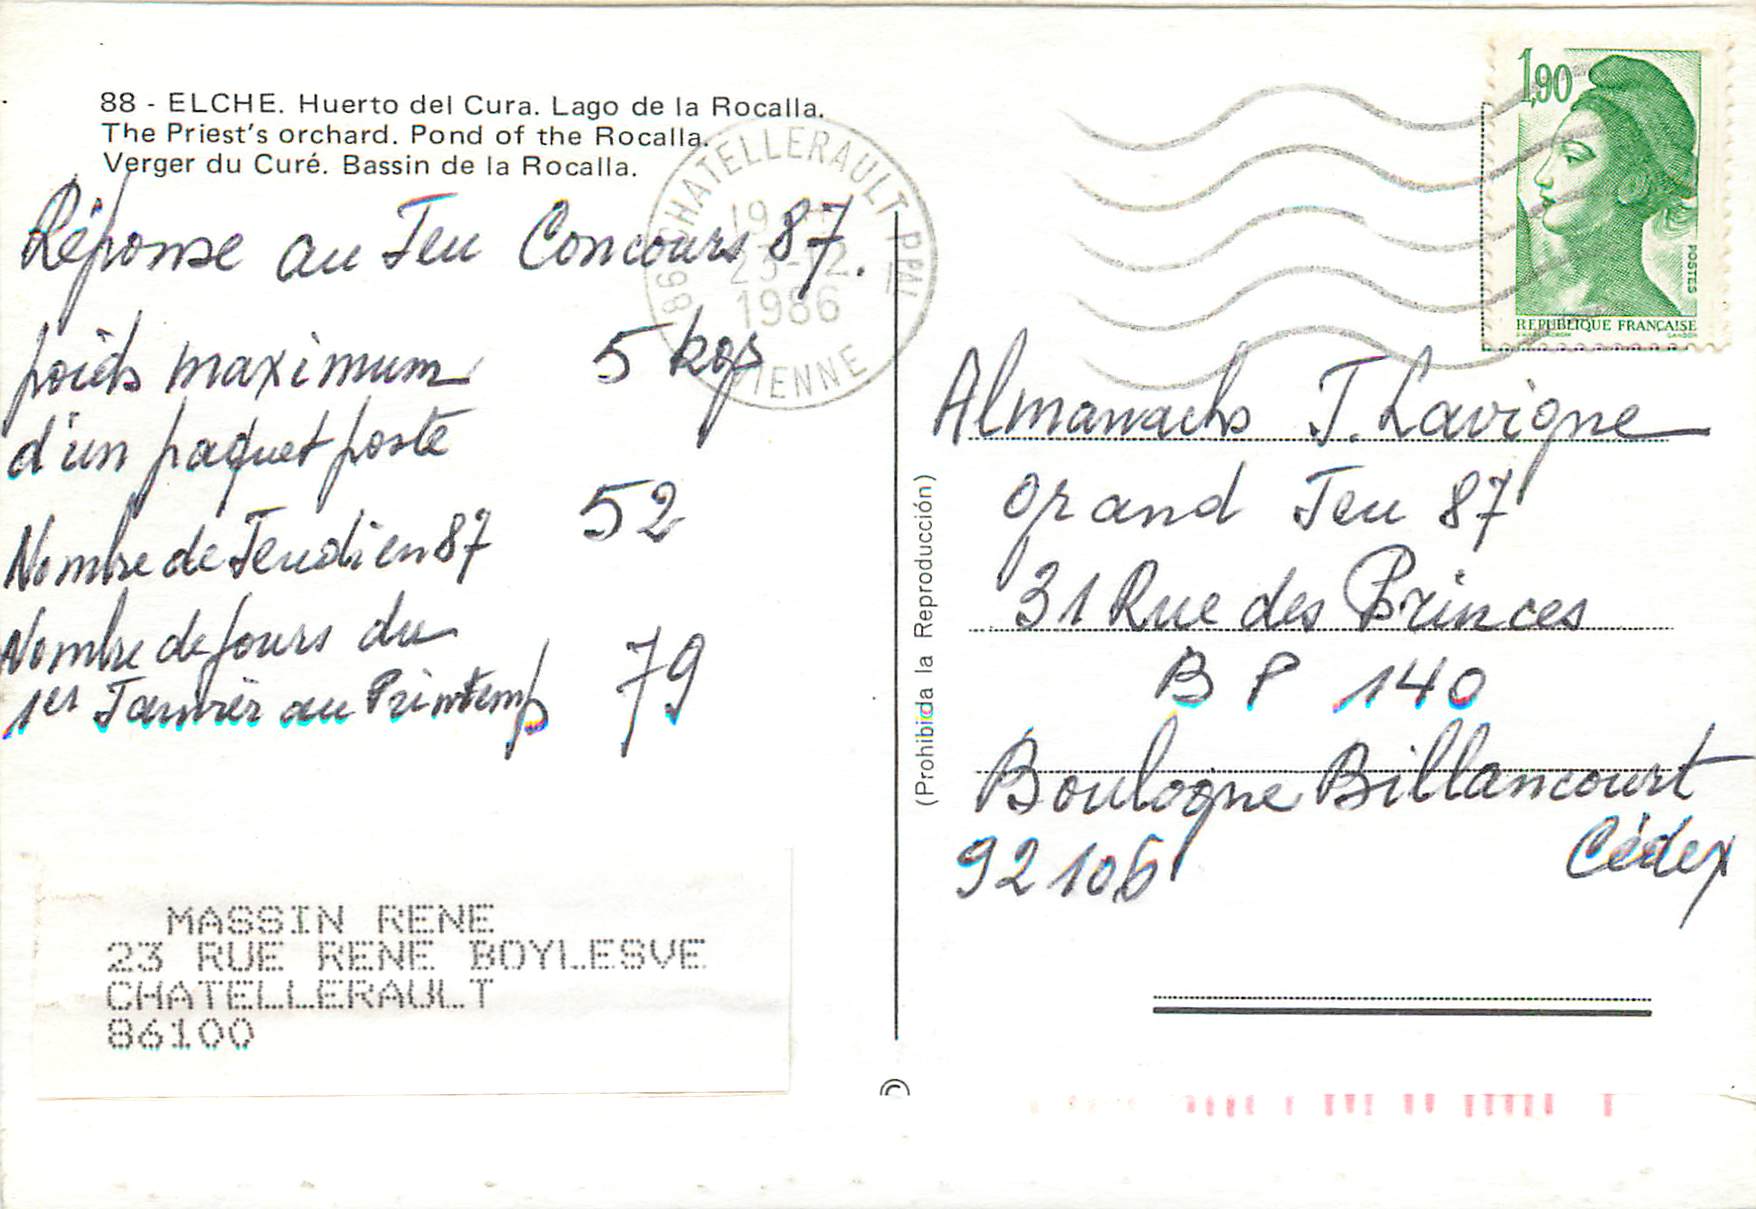 88 - ELCHE. Huerto del Cura. Lago de la Rocalla.
The Priest's orchard. Pond of the Rocalla.
Verger du Curé. Bassin de la Rocalla.
Réponse au Jeu Concours 87.
poids maximum 5 kgs
d'un paquet poste
Nombre de Jeudi en 87 52
Nombre de jours du
1er Janvier au Printemps 79
MASSIN RENE
23 RUE RENE BOYLESVE
CHATELLERAULT
86100
86 CHATELLERAULT PPAL
1986
VIENNE
(Prohibida la Reproducción)
©
1,90
POSTES
REPUBLIQUE FRANÇAISE
Almanachs J. Lavigne
grand Jeu 87
31 Rue des Princes
B P 140
Boulogne Billancourt
92106 Cédex